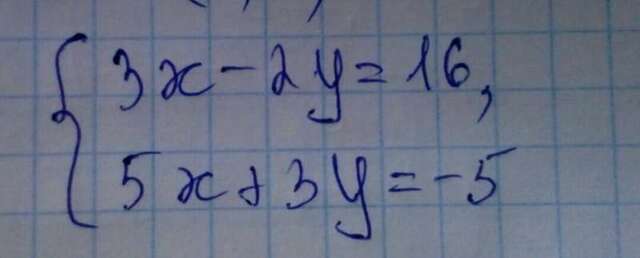 3x - 2y = 16,
5x + 3y = -5